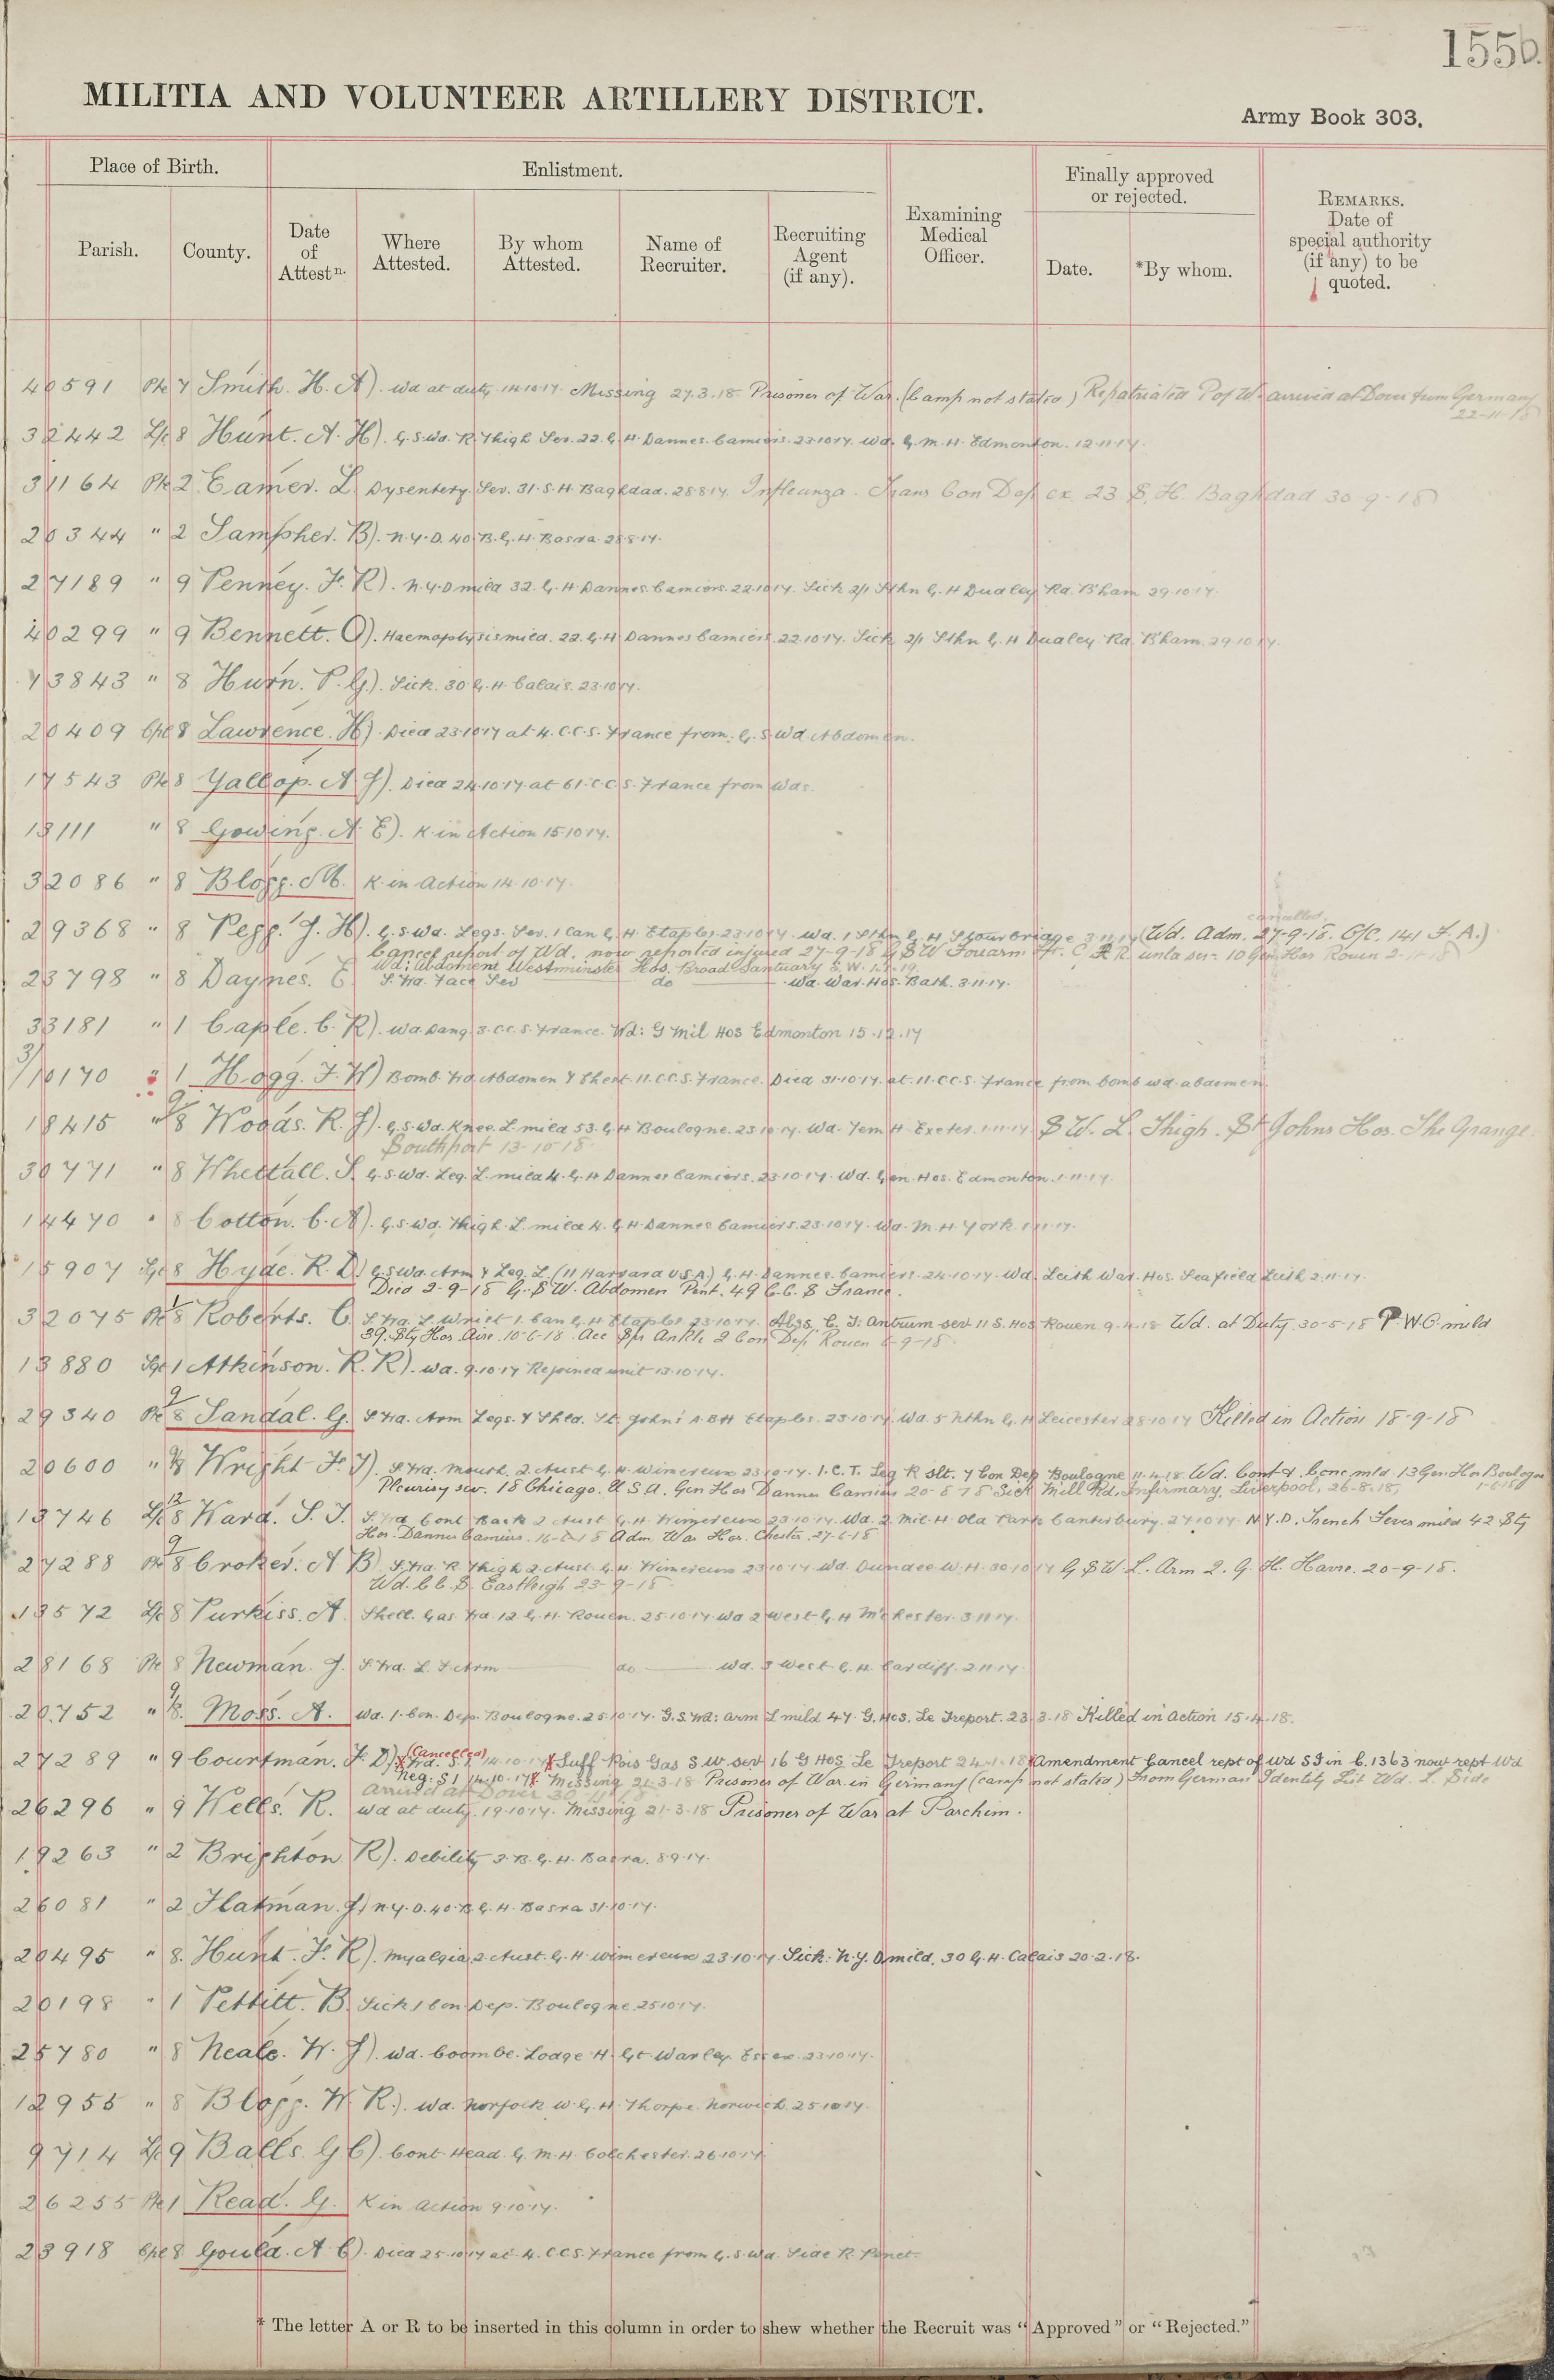 155b.
MILITIA AND VOLUNTEER ARTILLERY DISTRICT.
Army Book 303.
Place of Birth.
Enlistment.
Finally approved or rejected.
REMARKS. Date of special authority (if any) to be quoted.
Parish.
County.
Date of Attestn.
Where Attested.
By whom Attested.
Name of Recruiter.
Recruiting Agent (if any).
Examining Medical Officer.
Date.
*By whom.
40591 Pte 7 Smith. H. A). Wd at duty 14.10.17. Missing 27.3.18 Prisoner of War. (Camp not stated) Repatriated P of W. arrived at Dover from Germany
22-11-18
32442 L/c 8 Hunt. A. H). G.S.Wd. R. Thigh Sev. 22. G.H. Dannes. Camiers. 23.10.17. Wd. G.M.H. Edmonton. 12.11.17.
31164 Pte 2 Eamer. L. Dysentery. Sev. 31. S.H. Baghdad. 28.8.17. Influenza. Trans Con Dep ex 23 S.H. Baghdad 30-9-18
20344 " 2 Sampher. B). N.Y.D. 40 B.G.H. Basra 28.8.17.
27189 " 9 Penney. F. R). N.Y.D mild 32. G.H. Dannes. Camiers. 22.10.17. Sick 2/1 Sthn G.H Dudley Rd. B'ham 29.10.17.
40299 " 9 Bennett. O). Haemopolysis mild. 22. G.H Dannes Camiers. 22.10.17. Sick 2/1 Sthn G.H Dudley Rd. B'ham. 29.10.17.
43843 " 8 Hurn. P. G.). Sick. 30. G.H. Calais. 23.10.17.
20409 Cpl 8 Lawrence. H). Died 23.10.17 at 4. C.C.S. France from. G.S. Wd Abdomen.
17543 Pte 8 Yallop. A J). Died 24.10.17. at 61. C.C.S. France from Wds.
18111 " 8 Gowing. A. E). K. in Action 15.10.17.
32086 " 8 Blogg. M. K. in Action 14.10.17.
cancelled
29368 " 8 Pegg. J. H). G.S.Wd. Legs. Sev. 1 Can G.H. Etaples. 23.10.17. Wd. 1 Sthn G.H Stourbridge 3.11.17 (Wd. Adm. 27-9-18. O/C. 141 F.A.)
Cancel report of Wd. now reported injured 27-9-18 G S W Forearm Fr. 10 Gen Hos Rouen 2-11-18
Wd: abdomen. Westminster Hos. Broad Santuary S.W.
23798 " 8 Daynes. E. S. Wd. Face Sev do Wd. War. Hos. Bath. 3.11.17.
33181 " 1 Caple. C. R). Wd. Dang. 3. C.C.S. France. Wd: G Mil Hos Edmonton 15.12.17
3/10170 " 1 Hogg. F. W) Bomb. Wd. Abdomen & Chest. 11. C.C.S. France. Died 31.10.17. at. 11. C.C.S. France from bomb wd. abdomen.
18415 " 8 Woods. R. J). G.S.Wd. Knee. L. mild 53. G.H Boulogne. 23.10.17. Wd. Tem H. Exeter. 1.11.17 S W. L. Thigh. St Johns Hos. The Grange.
Southport 13-10-18
30771 " 8 Whettall. S. G.S.Wd. Leg. L. mild 4. G.H Dannes Camiers. 23.10.17. Wd. Gen. Hos. Edmonton. 1.11.17.
14470 " 8 Cotton. C. A). G.S.Wd. Thigh. L. mild 4. G.H. Dannes Camiers. 23.10.17. Wd. M.H. York. 1.11.17.
15907 Sgt 8 Hyde. R. D) G.S.Wd. Arm & Leg. L. (11 Harvard U.S.A.) G.H. Dannes. Camiers. 24.10.17. Wd. Leith War. Hos. Seafield Leith 2.11.17.
Died 2-9-18 G.S.W. Abdomen Pent. 49 C.C.S France.
32075 Pte 8 Roberts. C. S. Wd. L. Wrist 1. Can G.H Etaples 23.10.17. Abgs. C. T: Antrum sev 11 S. Hos Rouen 9.4.18 Wd. at Duty 30-5-18 P.W.O mild
39. Sty Hos Aire 10-6-18. Acc Spr Ankle 2 Con Dep Rouen 6-9-18
13880 Sgt 1 Atkinson. R. R). Wd. 9.10.17 Rejoined unit 13.10.17.
29340 Pte 8 Sandal. G. S Wd. Arm Legs. & Shld. St. Johns A.B.H Etaples. 23.10.17. Wd. 5 Nthn G.H Leicester 28.10.17 Killed in Action 18-9-18
20600 " 8 Wright F. J). S. Wd. Mouth. 2. Aust G.H. Wimereux 23.10.17. I.C.T. Leg R slt. 7 Con Dep Boulogne 11.4.18 Wd. Cont d. Conc mld 13 Gen Hos Boulogne
Pleurisy sev. 18 Chicago. U S A. Gen Hos Dannes Camiers 20-8-18 Sick Mill Rd. Infirmary, Liverpool, 26-8-18. 1-6-18
13746 L/c 8 Ward. S. J. S. Wd Cont Back 2 Aust G.H Wimereux 23.10.17. Wd. 2 Mil. H. Old Park Canterbury. 27.10.17 N.Y.D. Trench Fever mild 42 Sty
Hos. Dannes Camiers. 16-6-18 Adm War Hos. Chester. 27-6-18
27288 Pte 8 Croker. A B) S. Wd R Thigh 2. Aust. G.H. Wimereux 23.10.17 Wd. Dundee W.H. 30.10.17 G S W L. Arm 2. G. H. Havre. 20-9-18.
Wd. C.C.S. Eastleigh 23-9-18
13572 L/c 8 Purkiss. A. Shell. Gas Wd. 12. G.H. Rouen. 25.10.17. Wd 2 West G.H M'chester. 3.11.17.
28168 Pte 8 Newman. J. S. Wd. L. F. Arm do Wd. 3 West. G.H. Cardiff. 2.11.17.
20752 " 8. Moss. A. Wd. 1. Con. Dep. Boulogne. 25.10.17. G.S. Wd: Arm L mild 47. G. Hos. Le Treport. 23.3.18 Killed in Action 15.4.18.
27289 " 9 Courtman. F. D) (Cancelled) 14.10.17 Suff Pois Gas S.W. sev 16 G Hos Le Treport 24.1.18 Amendment Cancel rept of Wd SI in C. 1363 now rept Wd
Neg. SI 14.10.17. Missing 21.3.18 Prisoner of War in Germany (camp not stated) From German Identity List Wd. L. Side
Arrived at Dover 30
26296 " 9 Wells. R. Wd at duty. 19.10.17. Missing 21-3-18 Prisoner of War at Parchim.
19263 " 2 Brighton R). Debility 3. B. G.H. Basra. 8.9.17.
26081 " 2 Flatman. J) N.Y.D. 40. B. G.H. Basra 31.10.17.
20495 " 8. Hunt. F. R). Myalgia, 2. Aust. G.H. Wimereux 23.10.17. Sick: N.Y.D mild. 30 G.H. Calais 20.2.18.
20198 " 1 Pettitt. B. Sick 1 Con Dep. Boulogne. 25.10.17.
25780 " 8 Neale. W. J). Wd. Coombe. Lodge H. Gt Warley Essex 23.10.17.
12955 " 8 Blogg. W. R.). Wd. Norfock W.G.H. Thorpe. Norwich. 25.10.17.
9714 L/c 9 Balls. G. C). Cont. Head. G.M.H. Colchester. 26.10.17.
26255 Pte 1 Read. G. K in Action 9.10.17.
23918 Cpl 8 Gould. A C). Died 25.10.17 at 4. C.C.S. France from G.S. Wd. Side R. Penet.
* The letter A or R to be inserted in this column in order to shew whether the Recruit was "Approved" or "Rejected."